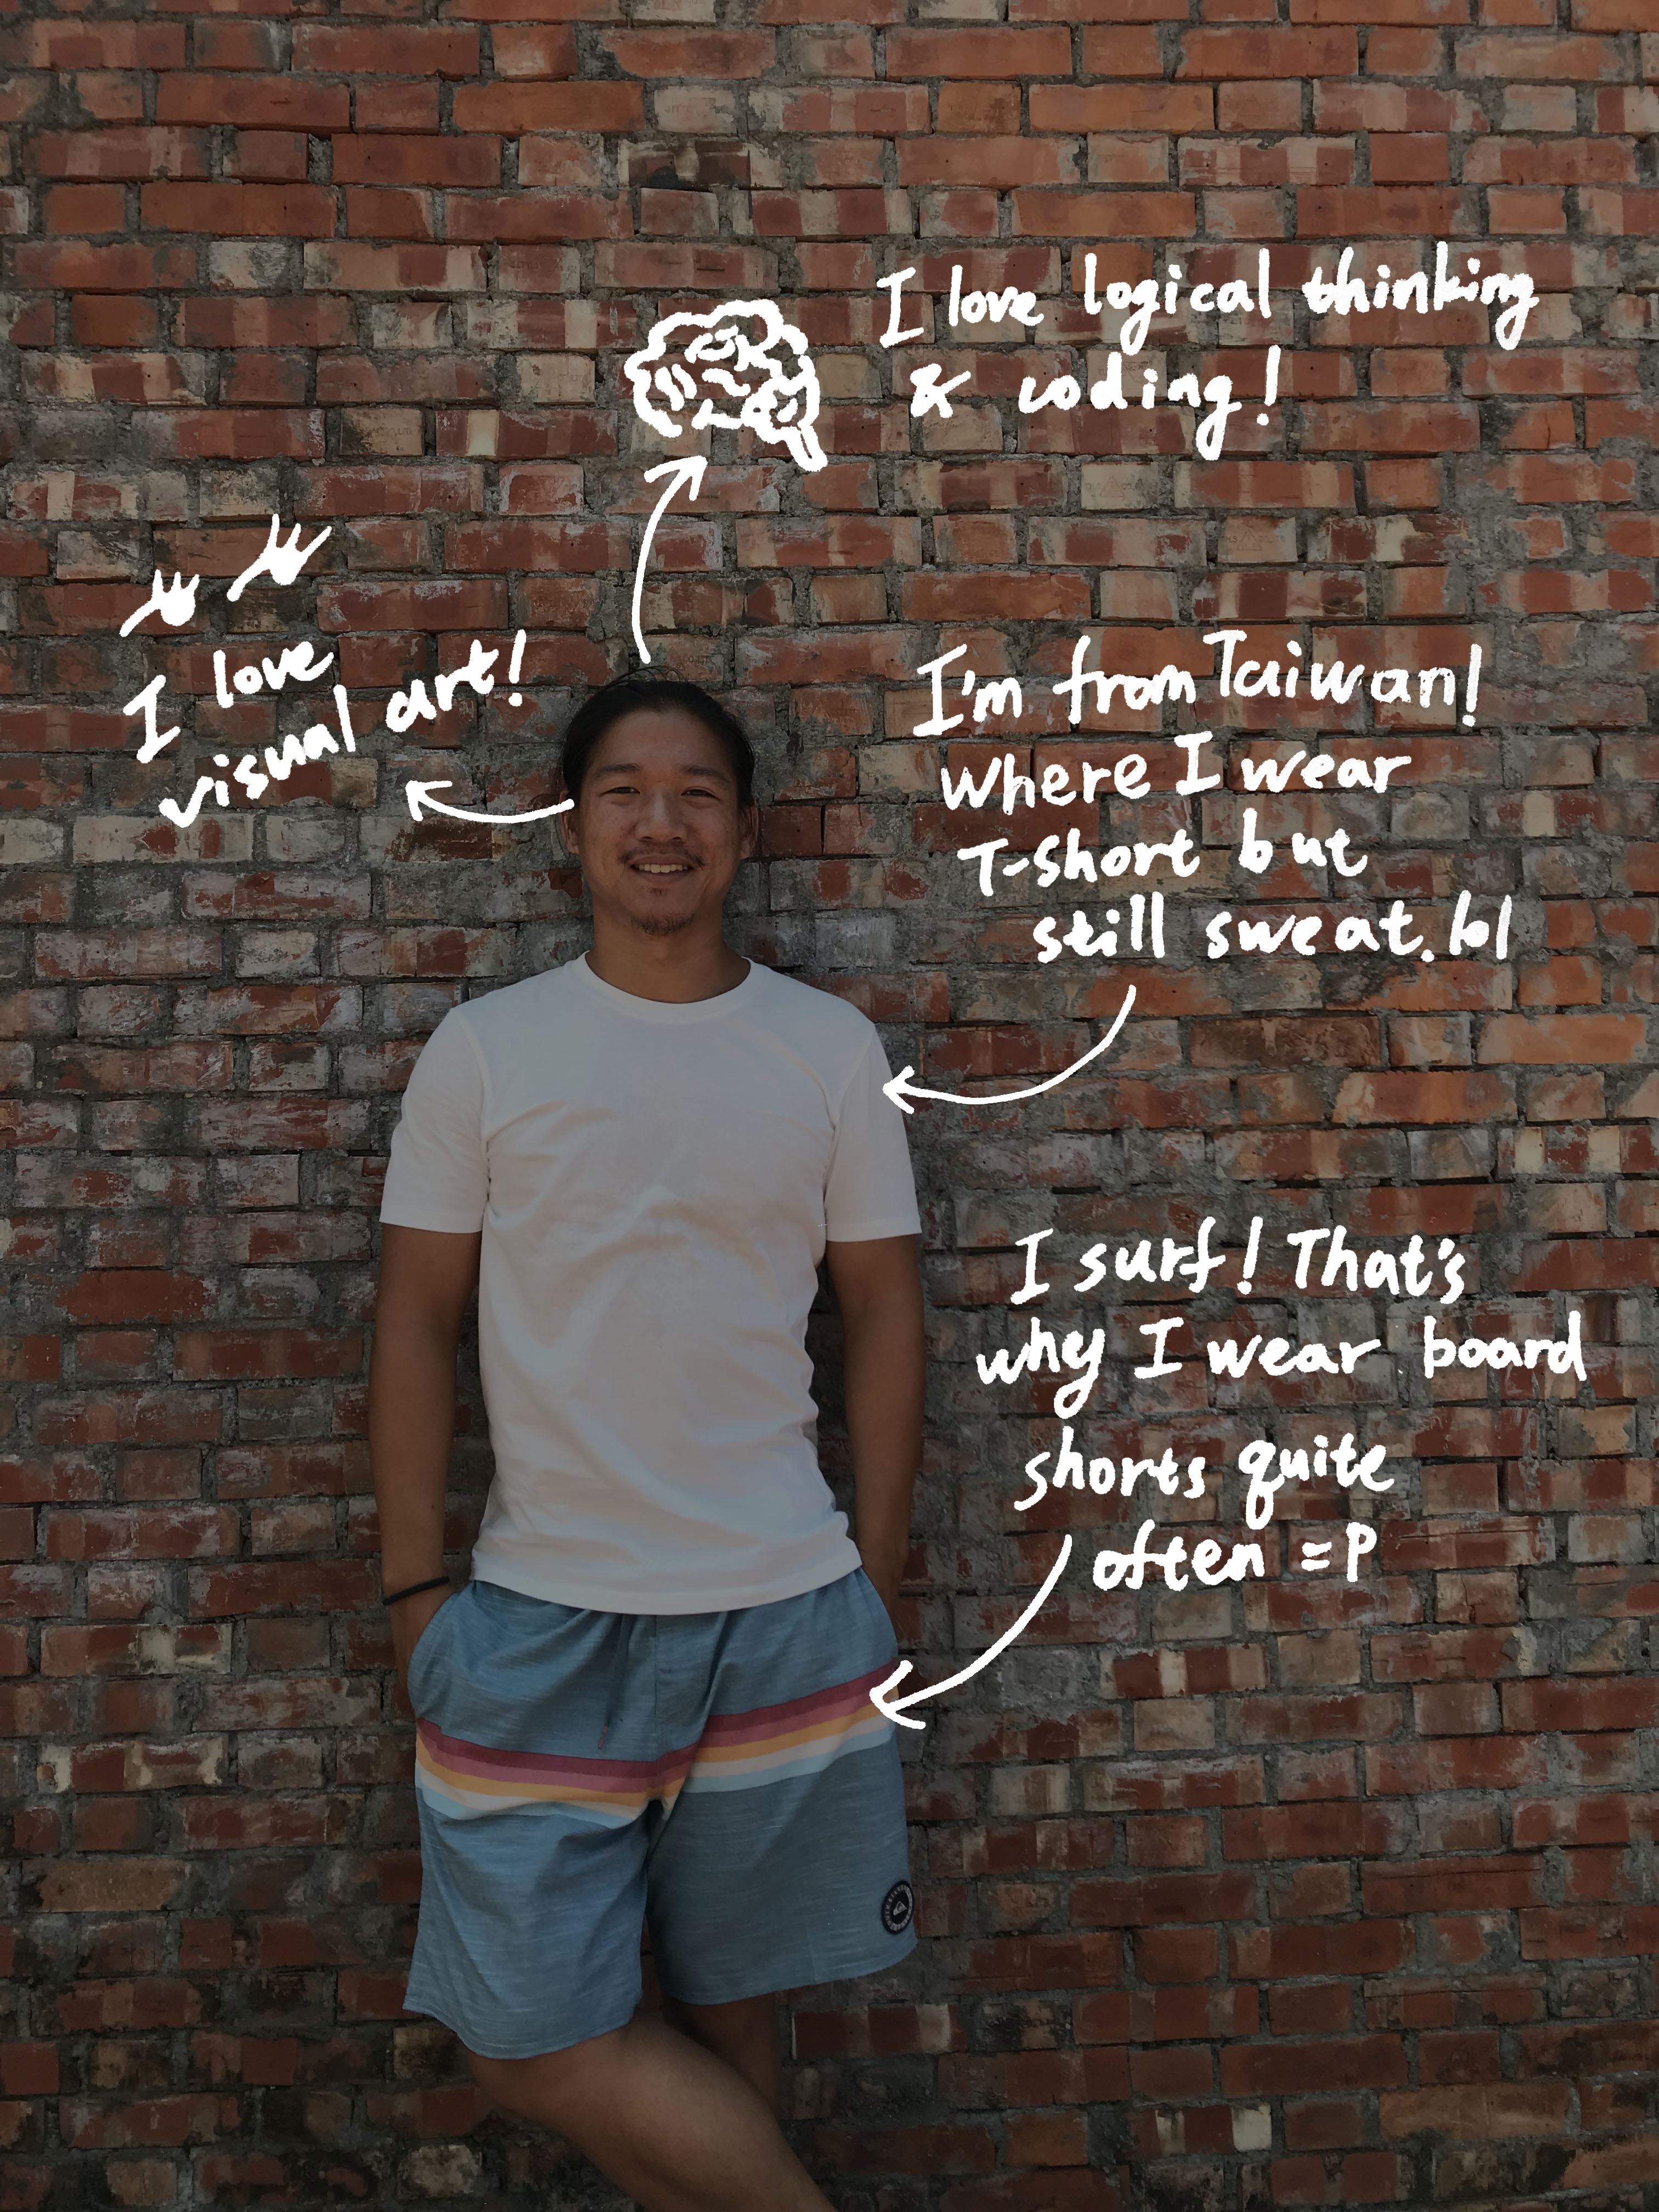 I love logical thinking
& coding!
I love
visual art!
I'm from Taiwan!
Where I wear
T-Short but
still sweat. lol
I surf! That's
why I wear board
shorts quite
often =P